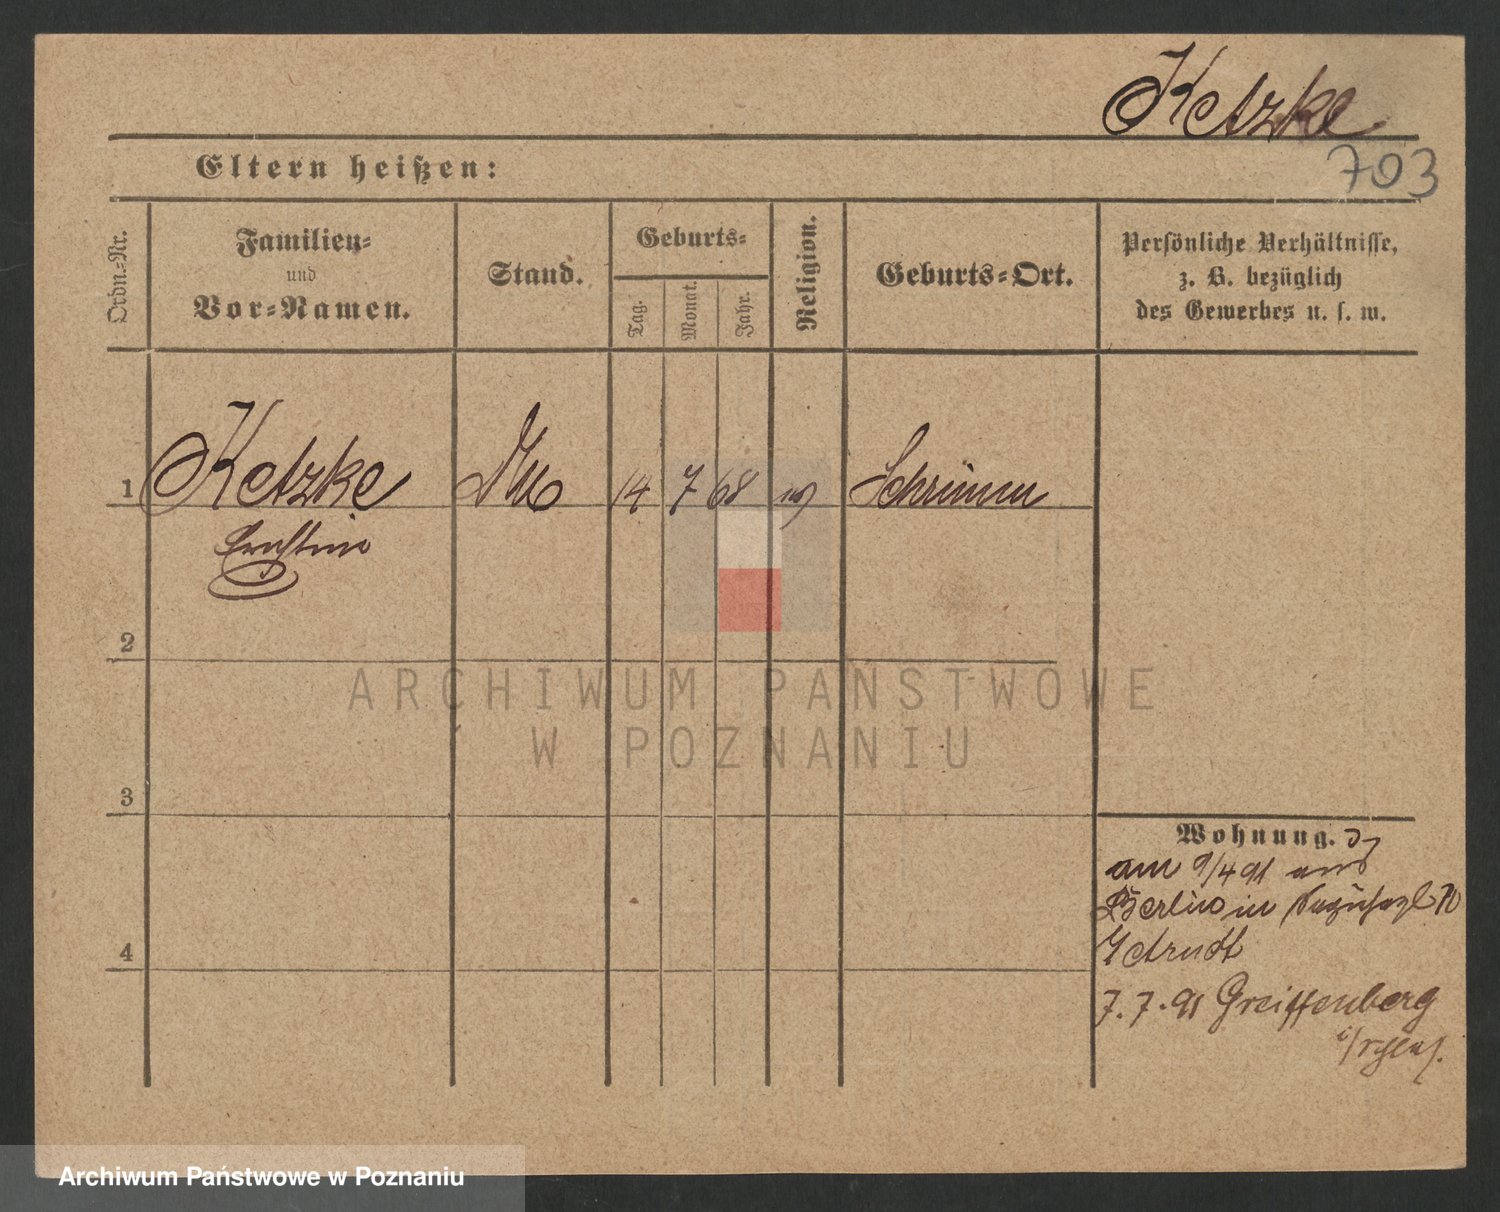 Ketzke
703
Eltern heißen:
Ordn.-Nr.
Familien-
und
Vor-Namen.
Stand.
Geburts-
Tag.
Monat.
Jahr.
Religion.
Geburts-Ort.
Persönliche Verhältnisse,
z. B. bezüglich
des Gewerbes u. s. w.
1 Ketzke 14 7 68 Schrimm
Ernstine
2
3
4
Wohnung.
am 9/4 91 aus
Berlin in
7.7.91 Greiffenberg
i/Schles.
ARCHIWUM PAŃSTWOWE
W POZNANIU
Archiwum Państwowe w Poznaniu